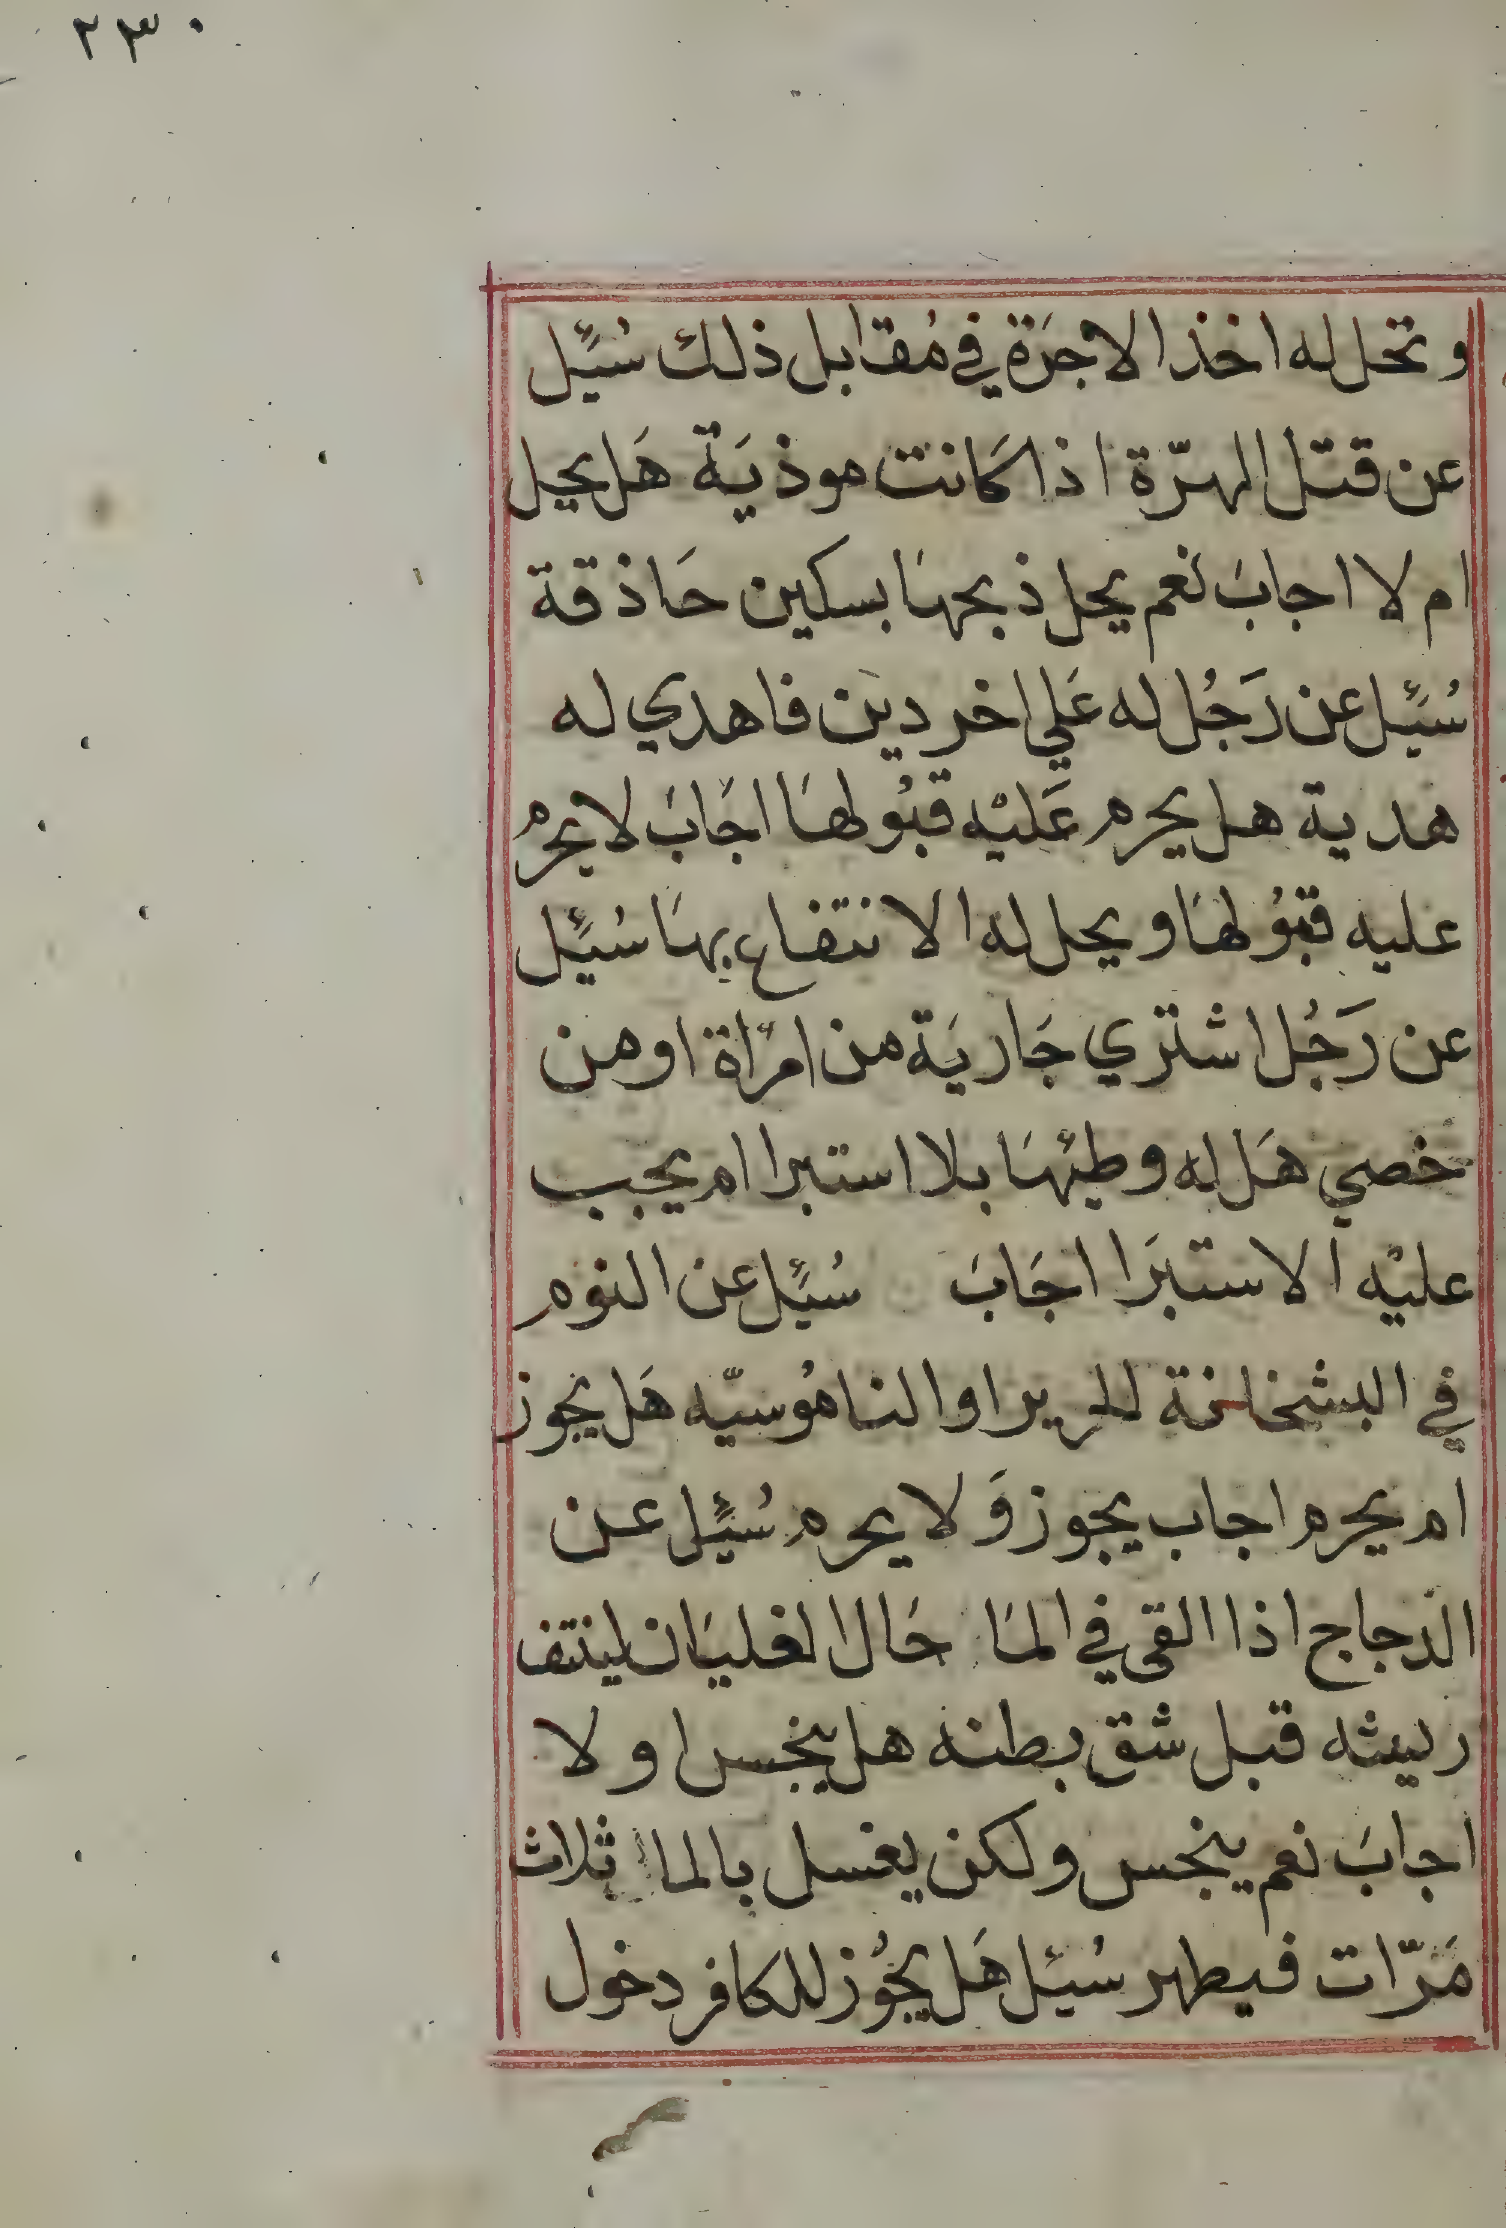 ٢٣٠
وتحل له اخذ الاجرَة في مُقابل ذلك سُئِل
عن قتل الهرّة اذا كانت موذيَة هَل يحل
ام لا اجابَ نعم يحل ذبحهَا بسكين حَاذقة
سُئِل عن رَجُل له عَلي اخر دين فاهدي له
هدية هل يحرم عَليْه قبُولهَا اجَابَ لا يحرمُ
عليه قبُولهَا ويحل له الانتفاع بهَا سُئِل
عن رَجُل اشتري جَاريَة من امرَأة او من
خصي هَل له وطئهَا بلا استبرا ام يجب
عليْه الاستبرَا اجَابَ سُئِل عن النوم
في البشخانة الحرير او الناموُسيّه هَل يجوز
ام يحرم اجاب يجوز وَلا يحرم سُئِل عن
الدّجاج اذا القي في المَا حَال الغليَان لينتف
ريشه قبل شق بطنه هل ينجس او لا
اجابَ نعم ينجس ولكن يغسل بالما ثلاث
مَرّات فيطهر سُئِل هَل يجُوز للكافر دخول